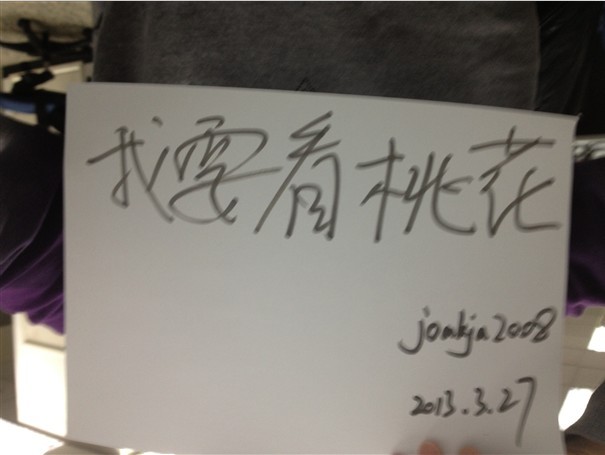 我要看桃花
joakja2008
2013.3.27